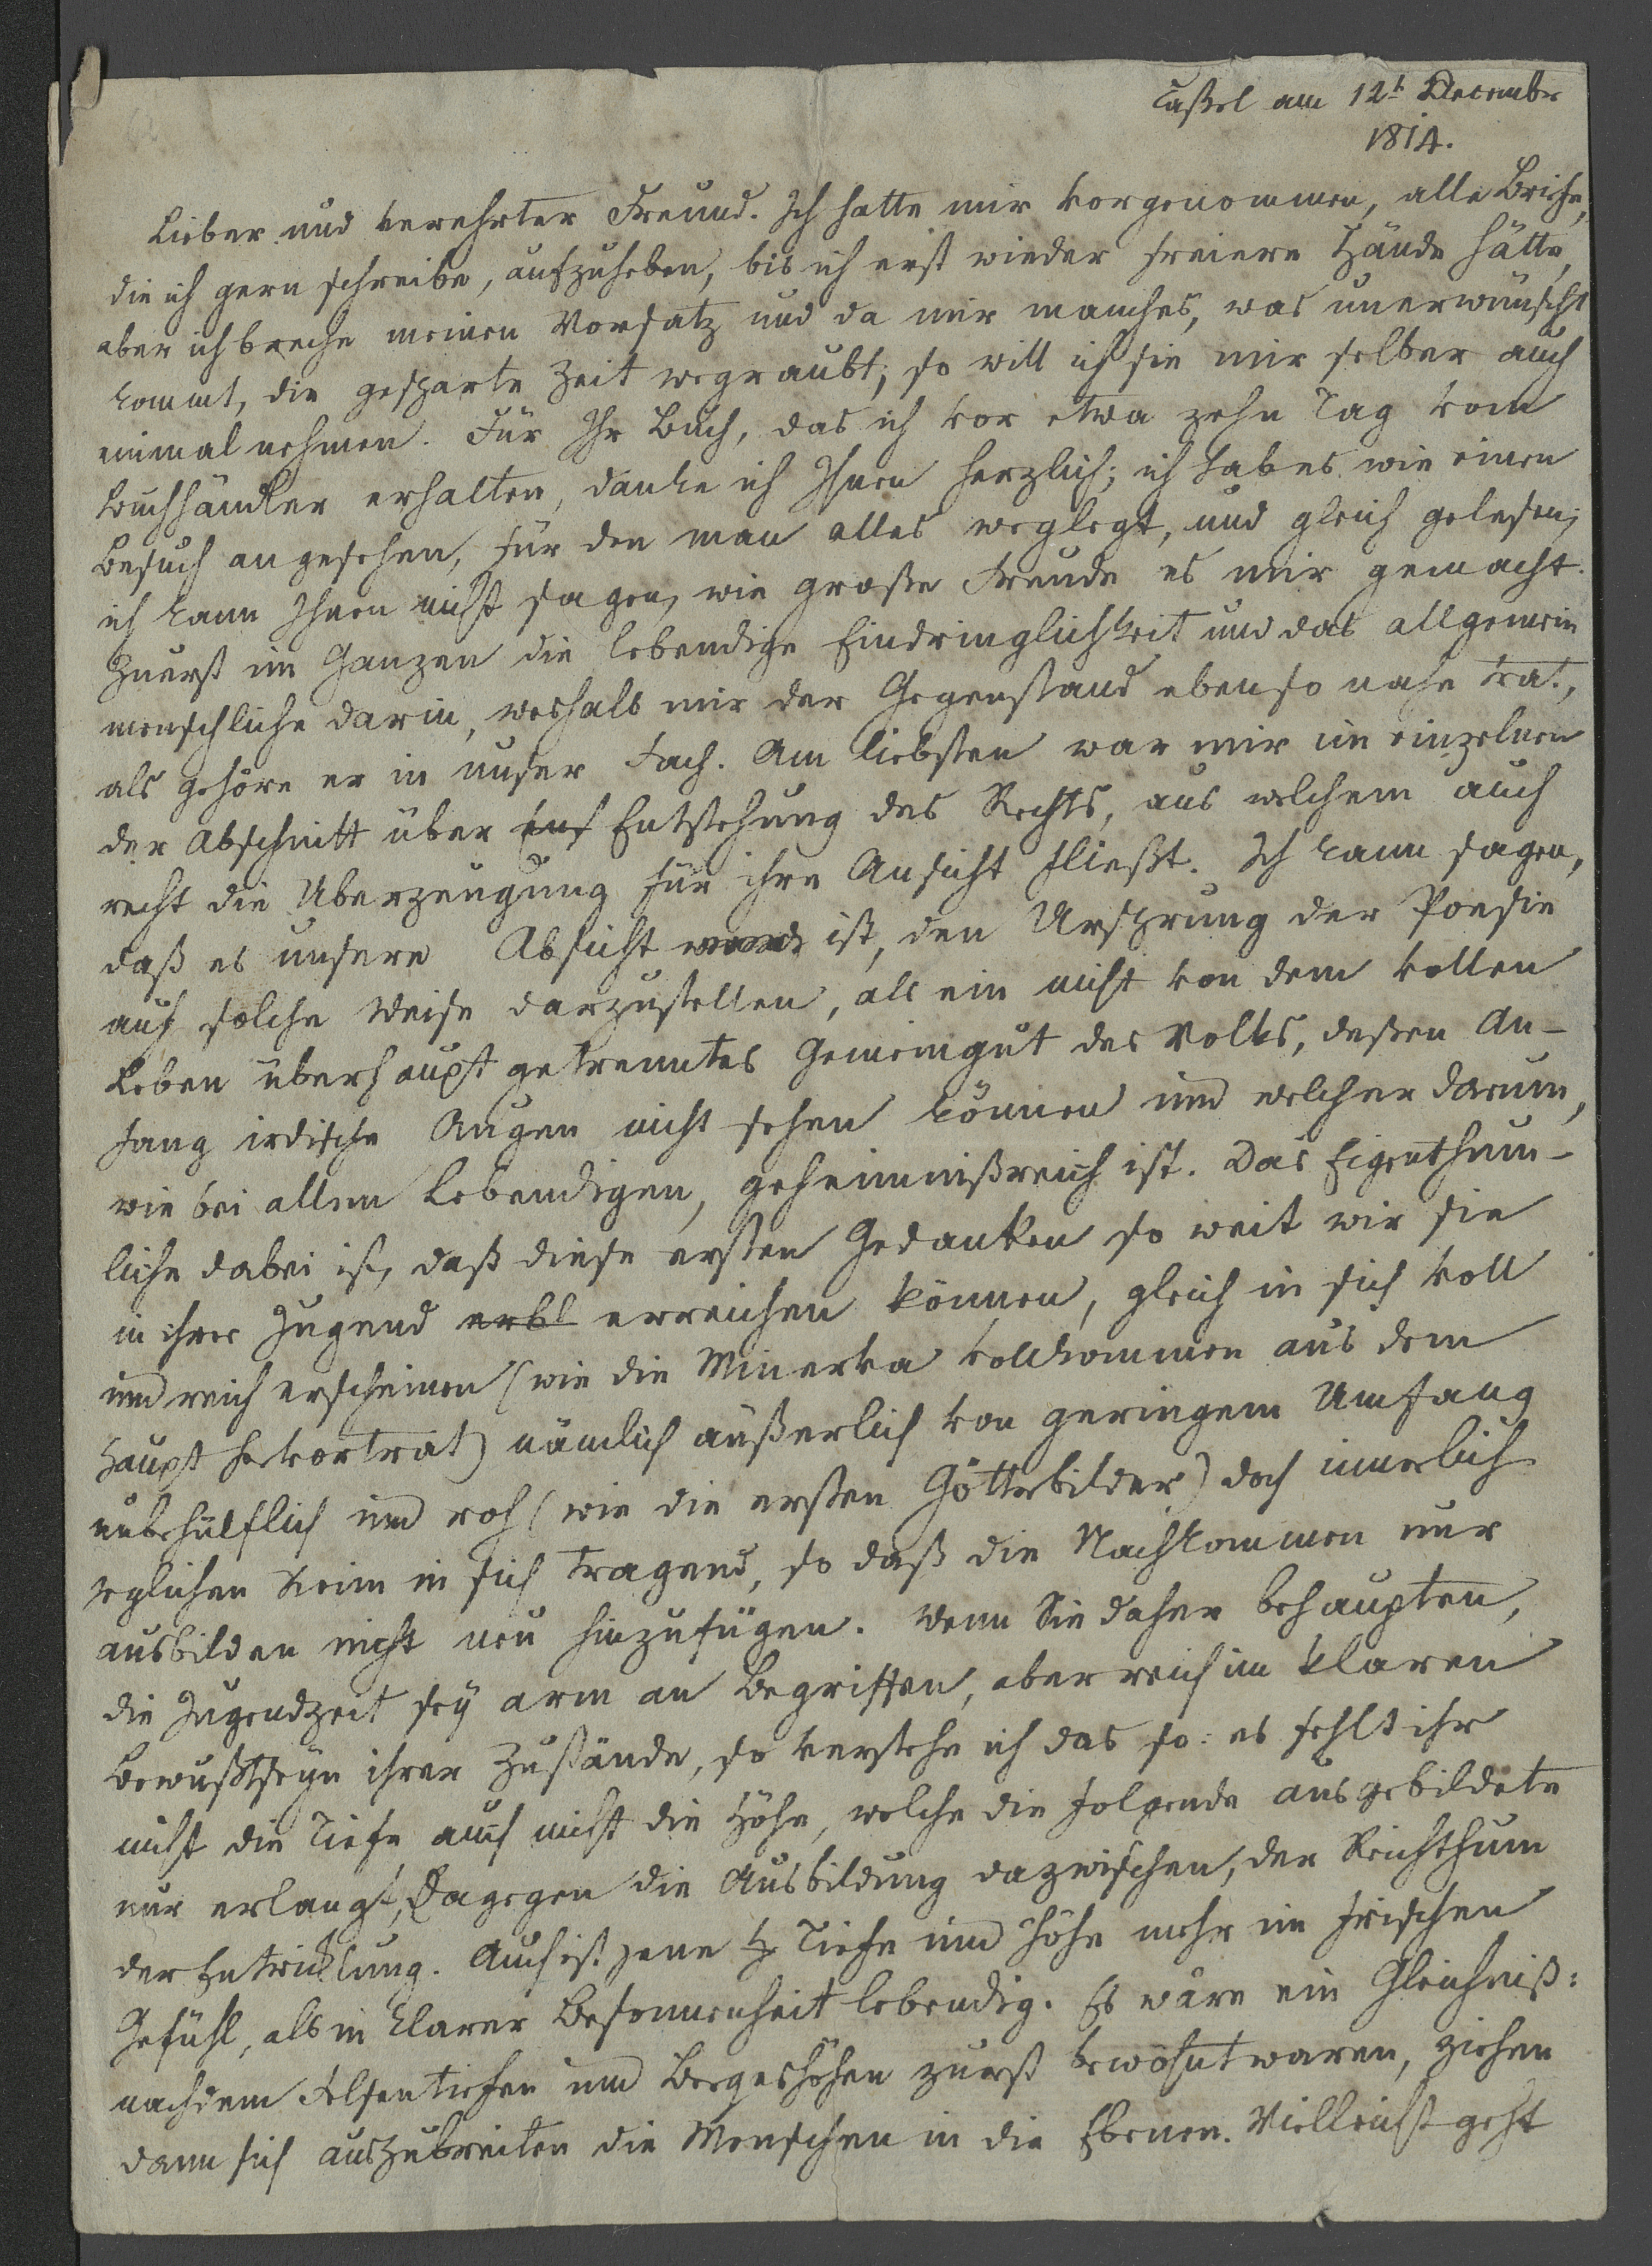 Caßel am 12t December
1814.
Lieber und verehrter Freund. Ich hatte mir vorgenommen, alle Briefe,
die ich gern schreibe, aufzuheben, bis ich erst wieder freiere Hände hätte,
aber ich breche meinen Vorsatz und da mir manches, was unerwünscht
kommt, die gesparte Zeit wegraubt, so will ich sie mir selber auch
einmal nehmen. Für Ihr Buch, das ich vor etwa zehn Tag vom
Buchhändler erhalten, danke ich Ihnen herzlich; ich hab es wie einen
Besuch angesehen, für den man alles weglegt, und gleich gelesen;
ich kann Ihnen nicht sagen, wie große Freude es mir gemacht.
Zuerst im Ganzen die lebendige Eindringlichkeit und das allgemein
menschliche darin, weshalb mir der Gegenstand ebenso nahe trat,
als gehöre er in unser Fach. Am liebsten war mir im einzelnen
der Abschnitt über Entstehung des Rechts, aus welchem auch
recht die Überzeugung für ihre Ansicht fließt. Ich kann sagen,
daß es unsere Absicht ist, den Ursprung der Poesie
auf solche Weise darzustellen, als ein nicht von dem vollen
Leben überhaupt getrenntes Gemeingut des Volks, deßen An-
fang irdische Augen nicht sehen können und welcher darum,
wie bei allem Lebendigen, geheimnißreich ist. Das Eigenthüm-
liche dabei ist, daß diese ersten Gedanken so weit wir sie
in ihrer Jugend erbl erreichen können, gleich in sich voll
und reich erscheinen (wie die Minerva vollkommen aus dem
Haupt hervortrat) nämlich äußerlich von geringem Umfang
unbehülflich und roh (wie die ersten Götterbilder) doch innerlich
jeglichen Keim in sich tragend, so daß die Nachkommen nur
ausbilden nicht neu hinzufügen. Wenn Sie daher behaupten,
die Jugendzeit sey arm an Begriffen, aber reich im klaren
Bewußtseyn ihrer Zustände, so verstehe ich das so: es fehlt ihr
nicht die Tiefe auch nicht die Höhe, welche die folgende ausgebildete
nur erlangt, dagegen die Ausbildung dazwischen, der Reichthum
der Entwicklung. Auch ist jene Tiefe und Höhe mehr im frischen
Gefühl, als in klarer Besonnenheit lebendig. Es wäre ein Gleichniß:
nachdem Felsentiefen und Bergeshöhen zuerst bewohnt waren, ziehen
dann sich auszubreiten die Menschen in die Ebenen. Vielleicht geht